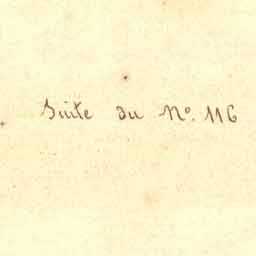 Suite du No. 116